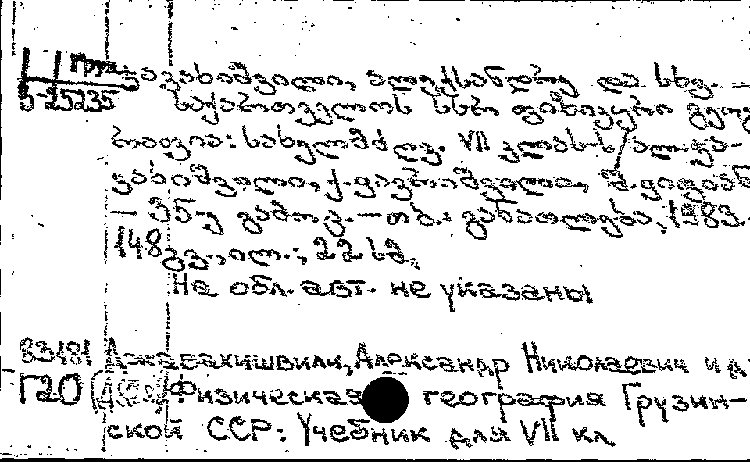 Груз. ჯავახიშვილი, ალექსანდრე და სხვ.
5-25235 საქართველოს სსრ ფიზიკური გეოგ
რაფია: სახელმძღვ. VII კლას-ს / ალ. ჯა-
ვახიშვილი, ქ. ჯავრიშვილი,
- 35-ე გამოც. - თბ.: განათლება, 1983. -
148 გვ., ილ.; 22 სმ.
На обл. авт. не указаны
83481 Джавахишвили, Александр Николаевич и д
Г20 Физическая география Грузин-
ской ССР: Учебник для VII кл